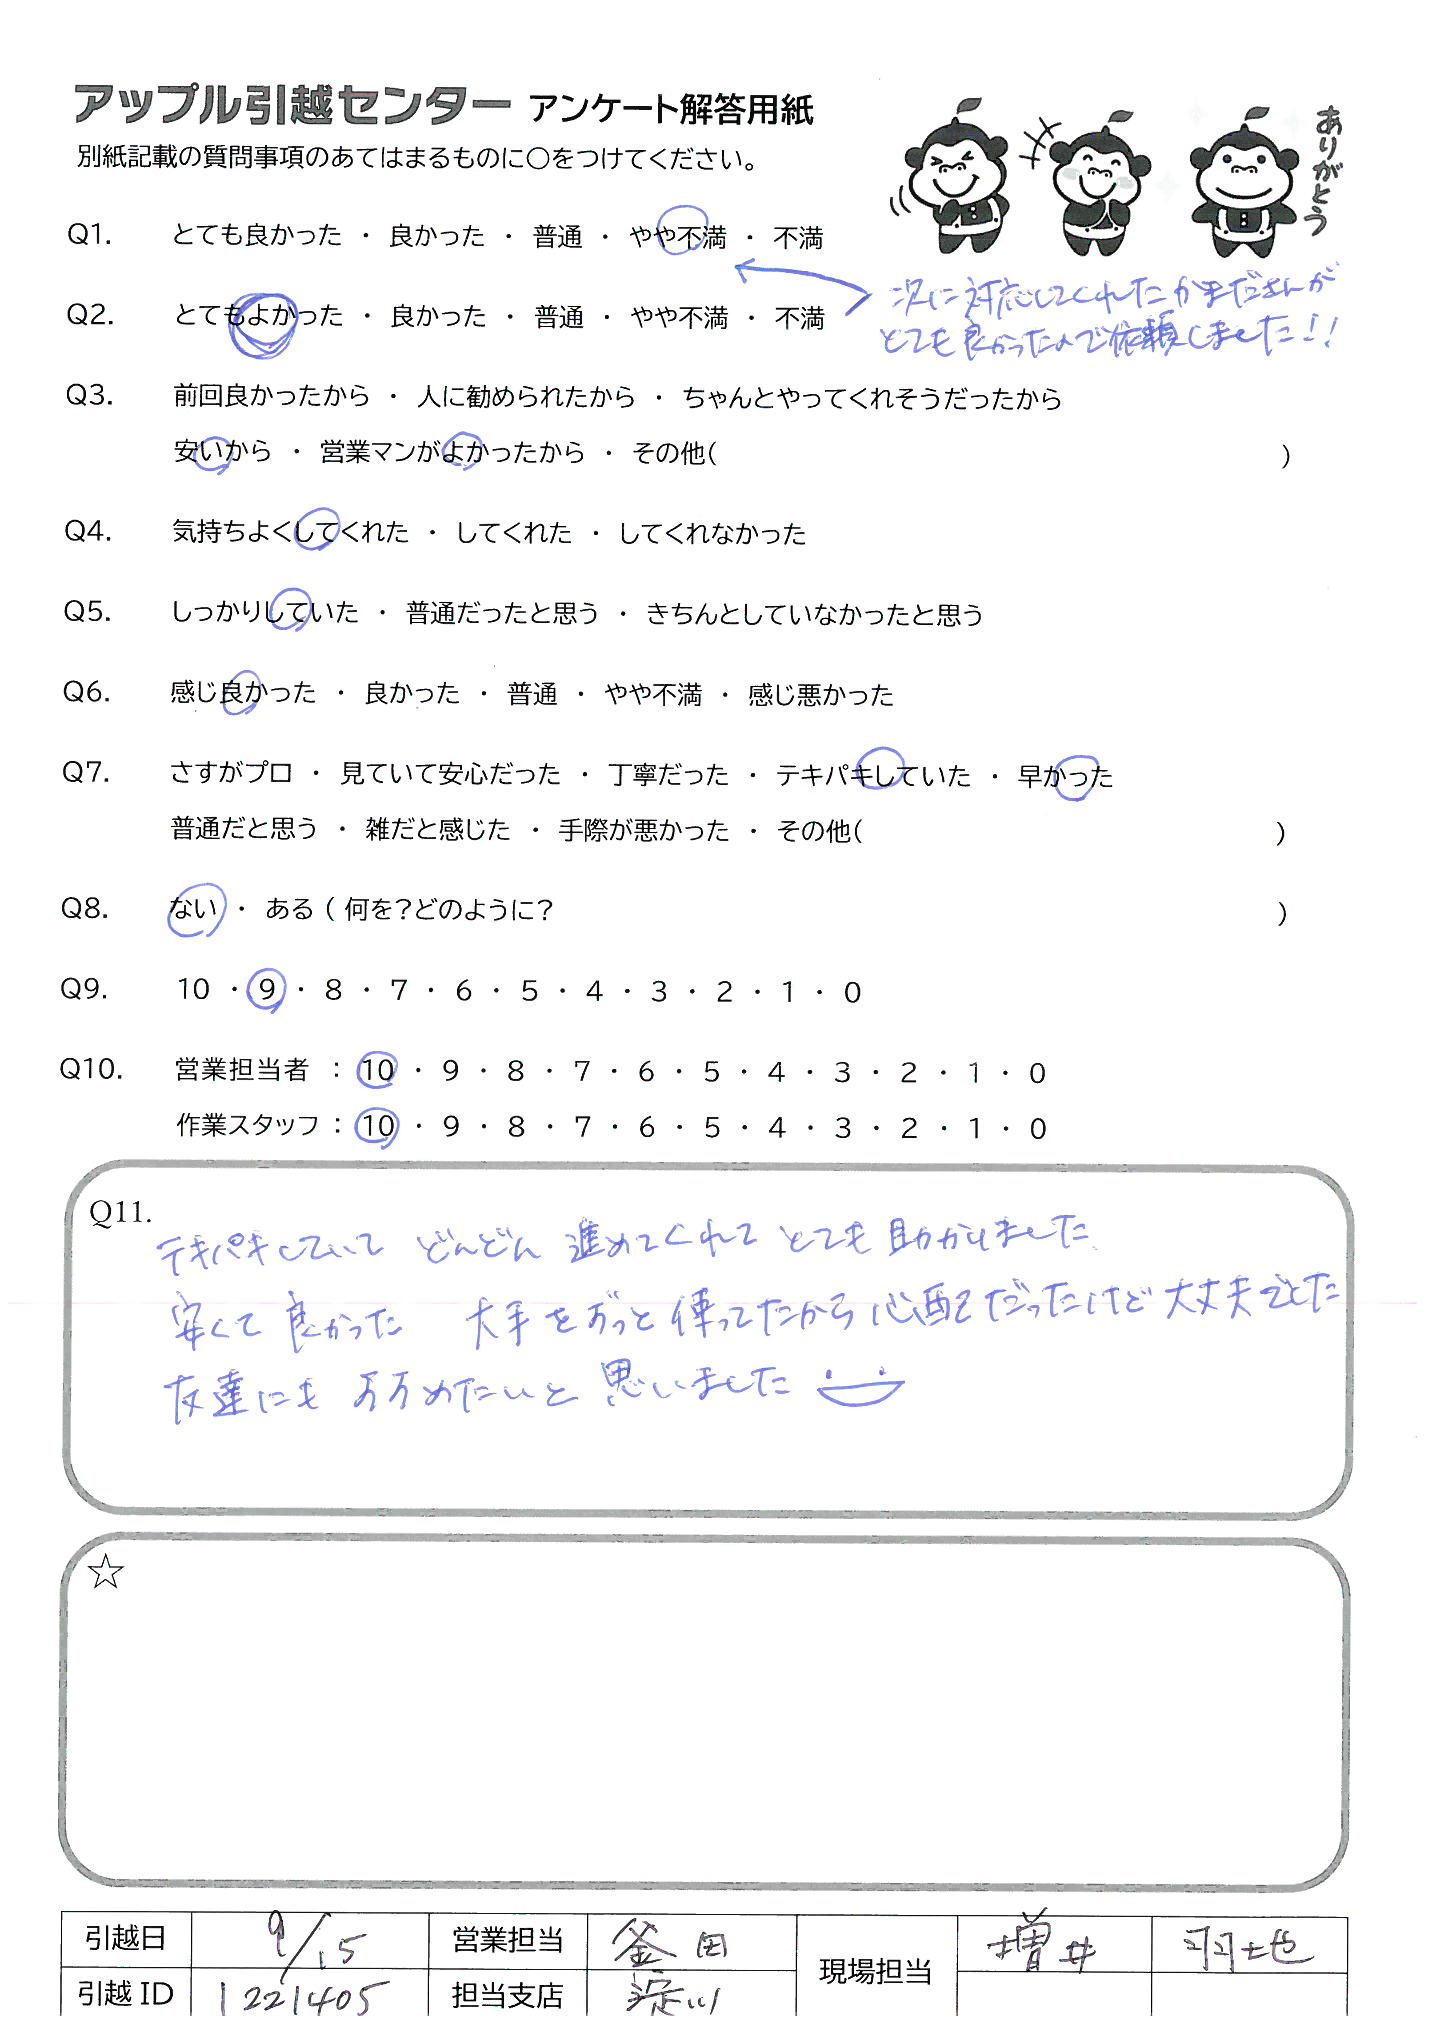 アップル引越センター アンケート解答用紙
別紙記載の質問事項のあてはまるものに○をつけてください。
ありがとう
Q1. とても良かった ・ 良かった ・ 普通 ・ やや不満 ・ 不満
次に対応してくれたかまださんが
とても良かったので依頼しました!!
Q2. とてもよかった ・ 良かった ・ 普通 ・ やや不満 ・ 不満
Q3. 前回良かったから ・ 人に勧められたから ・ ちゃんとやってくれそうだったから
安いから ・ 営業マンがよかったから ・ その他( )
Q4. 気持ちよくしてくれた ・ してくれた ・ してくれなかった
Q5. しっかりしていた ・ 普通だったと思う ・ きちんとしていなかったと思う
Q6. 感じ良かった ・ 良かった ・ 普通 ・ やや不満 ・ 感じ悪かった
Q7. さすがプロ ・ 見ていて安心だった ・ 丁寧だった ・ テキパキしていた ・ 早かった
普通だと思う ・ 雑だと感じた ・ 手際が悪かった ・ その他( )
Q8. ない ・ ある ( 何を?どのように? )
Q9. 10 ・ 9 ・ 8 ・ 7 ・ 6 ・ 5 ・ 4 ・ 3 ・ 2 ・ 1 ・ 0
Q10. 営業担当者 : 10 ・ 9 ・ 8 ・ 7 ・ 6 ・ 5 ・ 4 ・ 3 ・ 2 ・ 1 ・ 0
作業スタッフ : 10 ・ 9 ・ 8 ・ 7 ・ 6 ・ 5 ・ 4 ・ 3 ・ 2 ・ 1 ・ 0
Q11.
テキパキしていて どんどん 進めてくれて とても助かりました
安くて 良かった 大手をずっと使ってたから心配だったけど大丈夫でした
友達にも すすめたいと 思いました
☆
引越日 9/15 営業担当 釜田 現場担当 増井 羽地
引越ID 1221405 担当支店 淀川